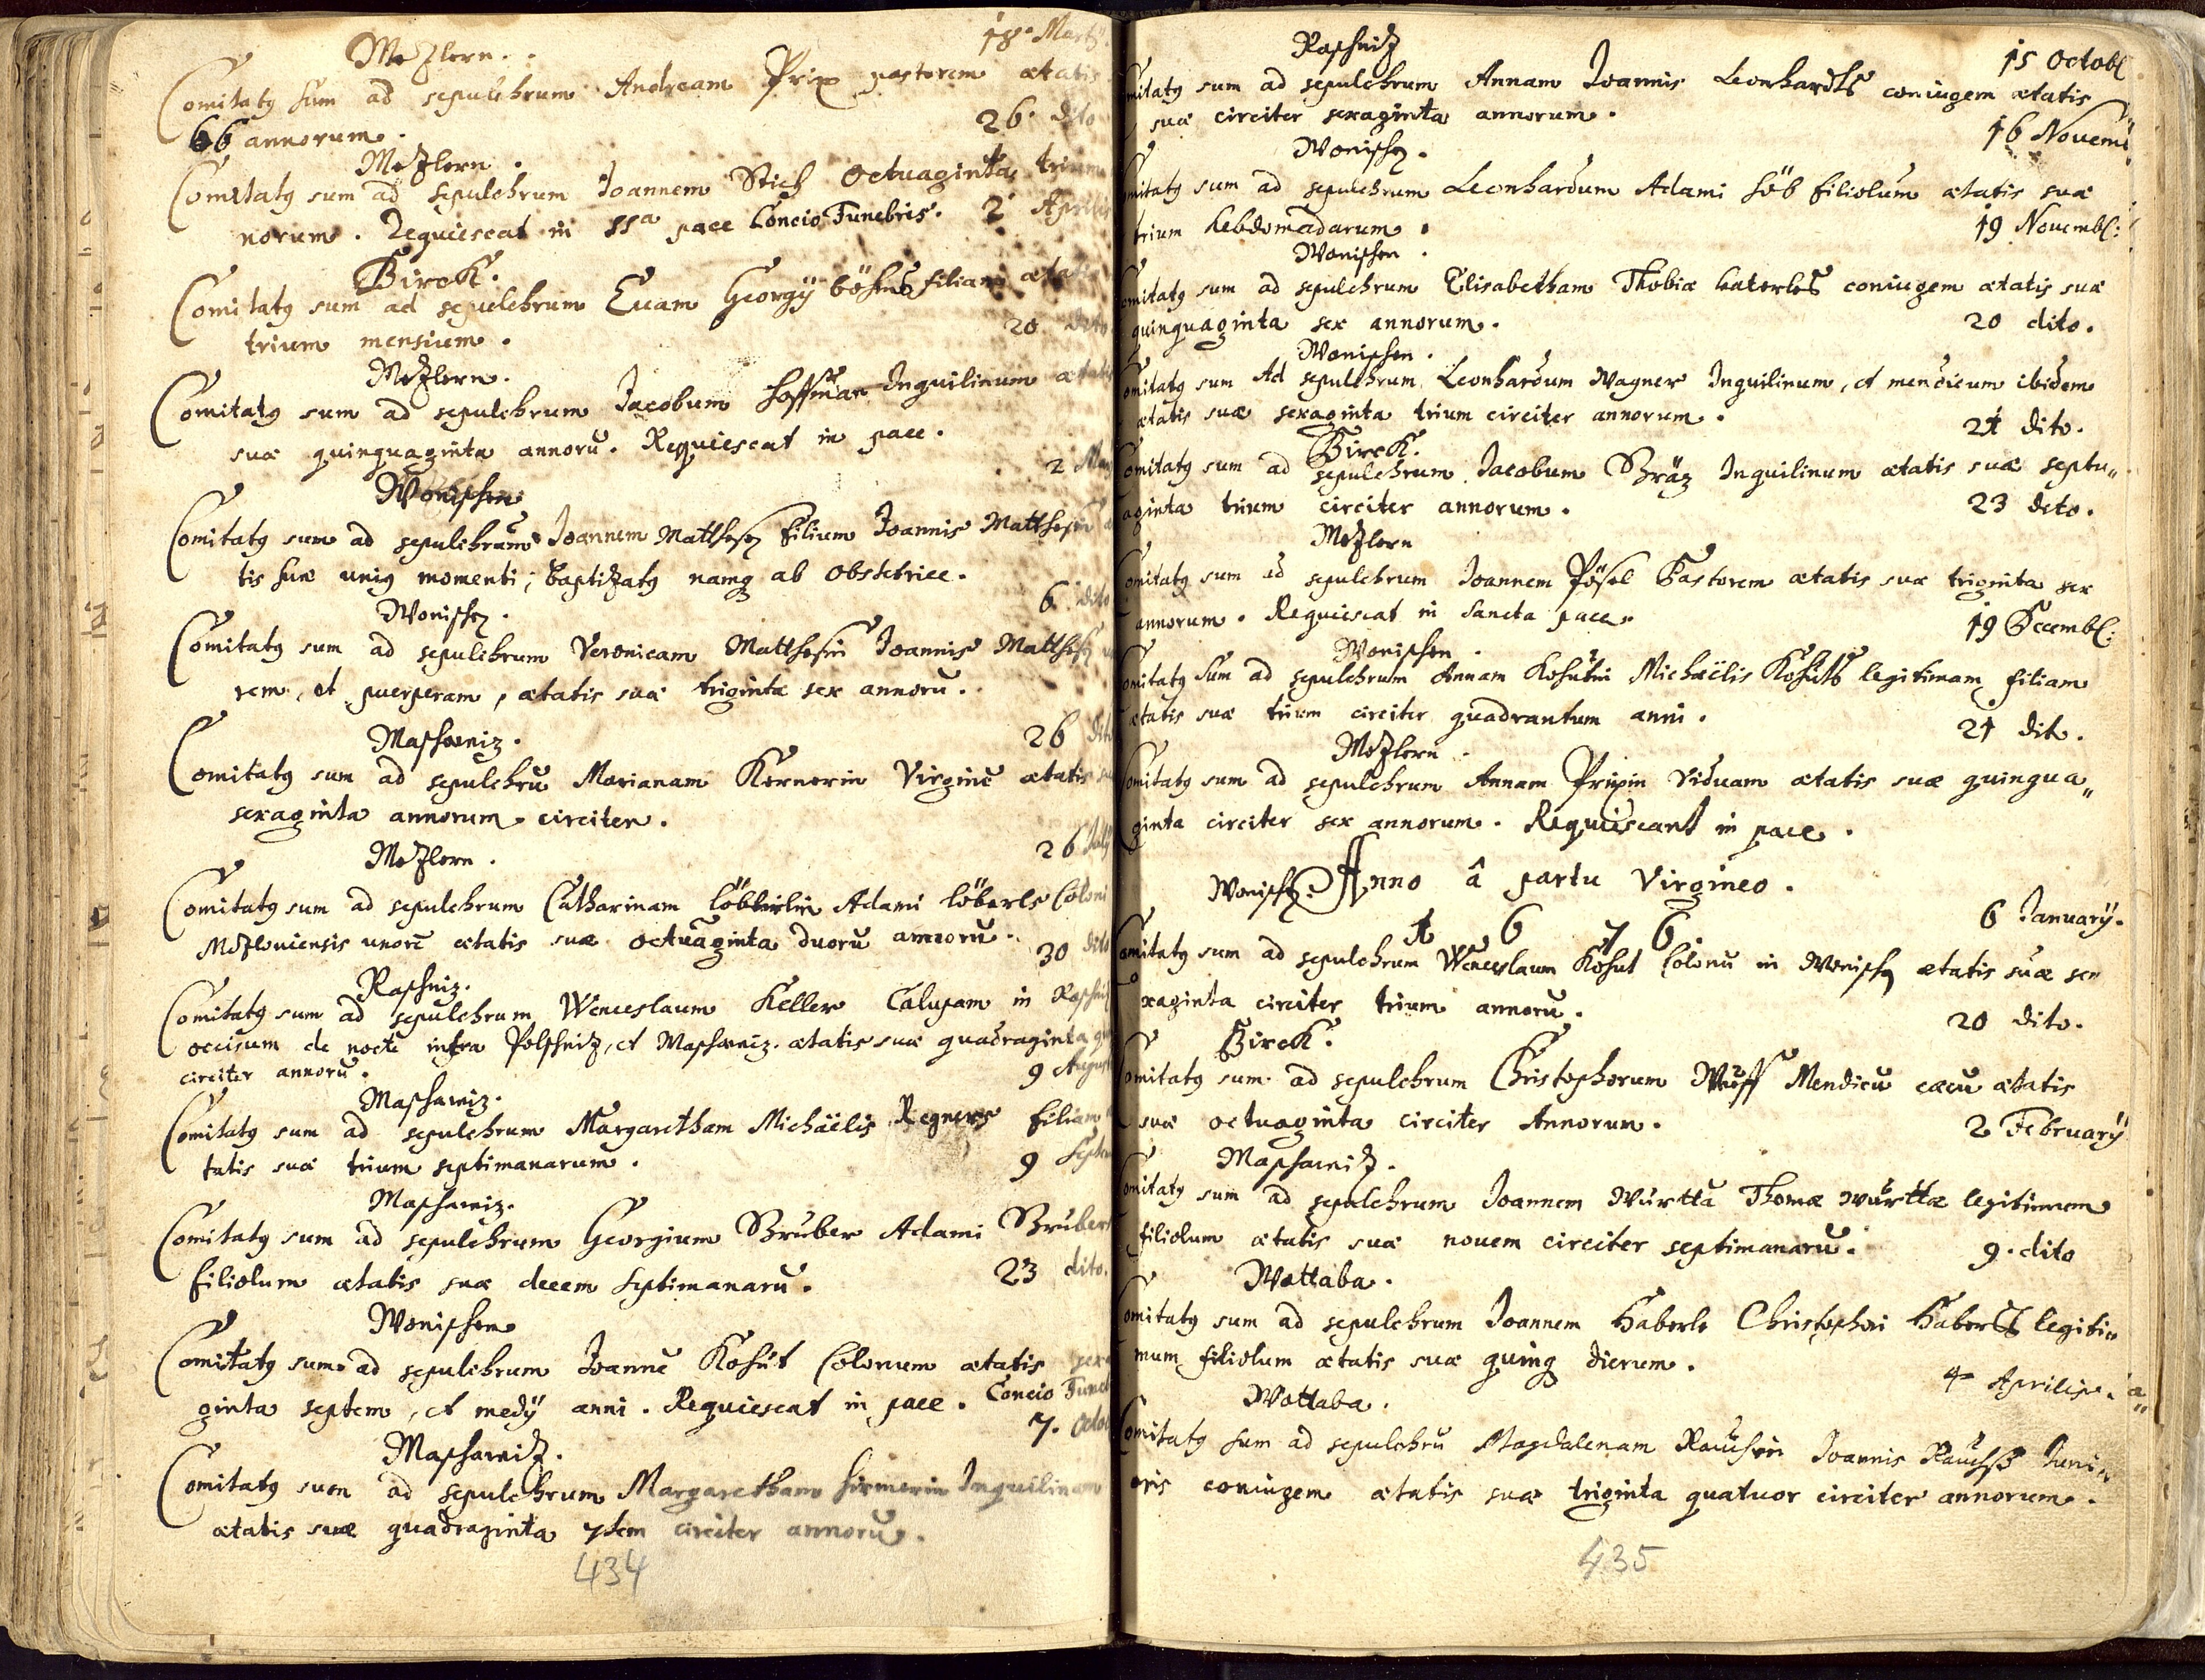 Mezlern.
18. Martÿ
Comitatq sum ad sepulchrum Andream Prix pastorem ætatis
66 annorum.
26. dito
Mezlern.
Comitatq sum ad sepulchrum Joannem Stich Octuaginta trium
norum. Requiescat in SSa pace Concio Funebris.
2 Aprilis
Birck.
Comitatq sum ad sepulchrum Euam Georgÿ böhmß filiam
trium mensium.
20 dito
Mezlern.
Comitatq sum ad sepulchrum Jacobum Hoffman Inquilinum ætatis
suæ quinquaginta annorū. Requiescat in pace.
2
Wonischen
Comitatq sum ad sepulchrum Joannem Matthesz filium Joannis
tis suæ uniq momenti, baptizatq namq ab obstetrice.
6. dito
Wonischz.
Comitatq sum ad sepulchrum Veronicam Matthesin Joannis
rem, et puerperam, ætatis suæ triginta sex annorū.
26 dito
Maschæniz.
Comitatq sum ad sepulchrū Marianam Kernerin Virginē ætatis
sexaginta annorum circiter.
26 July
Mezlern.
Comitatq sum ad sepulchrum Catharinam Adami löberls Coloni
Mezlouiensis uxorē ætatis suæ octuaginta duorū annorū.
30 dito
Raschniz.
Comitatq sum ad sepulchrum Wenceslaum Keller Calupam in Raschniz
occisum de nocte intra Polschniz, et Maschæniz. ætatis suæ quadraginta
circiter annorū.
9 August
Maschæniz.
Comitatq sum ad sepulchrum Margaretham Michaëlis Regners filiam
tatis suæ trium septimanarum.
9 Septem
Maschæniz.
Comitatq sum ad sepulchrum Georgium Gruber Adami Grubers
filiolum ætatis suæ decem septimanarū.
23 dito.
Wonischen
Comitatq sum ad sepulchrum Joannē Kohut Colonum ætatis
ginta septem, et medÿ anni. Requiescat in pace. Concio
7. Octob
Maschænitz.
Comitatq sum ad sepulchrum Margaretham Hirmerin Inquilinam
ætatis suæ quadraginta 7tem circiter annorū.
434
Raschnitz
15 Octob
mitatq sum ad sepulchrum Annam Joannis Leonhardtß coniugem ætatis
suæ circiter sexaginta annorum.
16 Nouem
Wonischz.
mitatq sum ad sepulchrum Leonhardum Adami filiolum ætatis suæ
trium hebdomadarum.
19 Nouemb:
Wonischen.
omitatq sum ad sepulchrum Elisabetham Thobiæ haterlß coniugem ætatis suæ
quinquaginta sex annorum.
20 dito.
Wonischen.
omitatq sum Ad sepulchrum Leonhardum Wagner Inquilinum, et mendicum ibidem
ætatis suæ sexaginta trium circiter annorum.
21 dito.
Birck.
omitatq sum ad sepulchrum Jacobum Gräz Inquilinum ætatis suæ septu„
aginta trium circiter annorum.
23 dito.
Mezlern
omitatq sum ad sepulchrum Joannem Pösel Pastorem ætatis suæ triginta sex
annorum. Requiescat in Sancta pace.
19 Decemb:
Wonischen.
omitatq sum ad sepulchrum Annam Kohutin Michaëlis Kohutß legitimam filiam
ætatis suæ trium circiter quadrantum anni.
21 dito.
Mezlern.
omitatq sum ad sepulchrum Annam Prixin Viduam ætatis suæ quinqua„
ginta circiter sex annorum. Requiescant in pace.
Anno â partu Virgineo.
1 6 7 6
Wonischz.
6 Januarÿ.
omitatq sum ad sepulchrum Wenceslaum Kohut Colonū in Wonischz ætatis suæ se„
xaginta circiter trium annorū.
20 dito.
Birck.
omitatq sum ad sepulchrum Christophorum Mendicū cæcū ætatis
suæ octuaginta circiter Annorum.
2 February
Maschænitz.
omitatq sum ad sepulchrum Joannem Wurtta Thomæ wurttæ legitimum
filiolum ætatis suæ nouem circiter septimanarū.
9. dito
Wottaba.
omitatq sum ad sepulchrum Joannem Haberle Christophori Haberls legiti„
mum filiolum ætatis suæ quinq dierum.
4 Aprilis.
Wottaba.
Comitatq sum ad sepulchrū Magdalenam Rauchin Joannis Rauchß Juni„
oris coniugem ætatis suæ triginta quatuor circiter annorum.
435